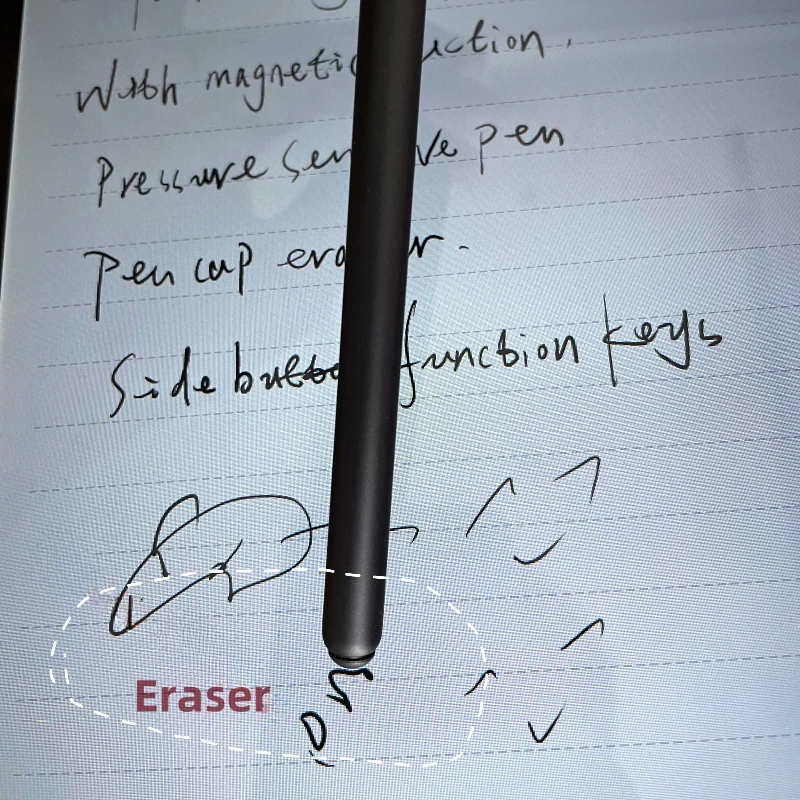 With magnetic
Pressure sen ve pen
Pen cap era r.
Side button function keys
Eraser